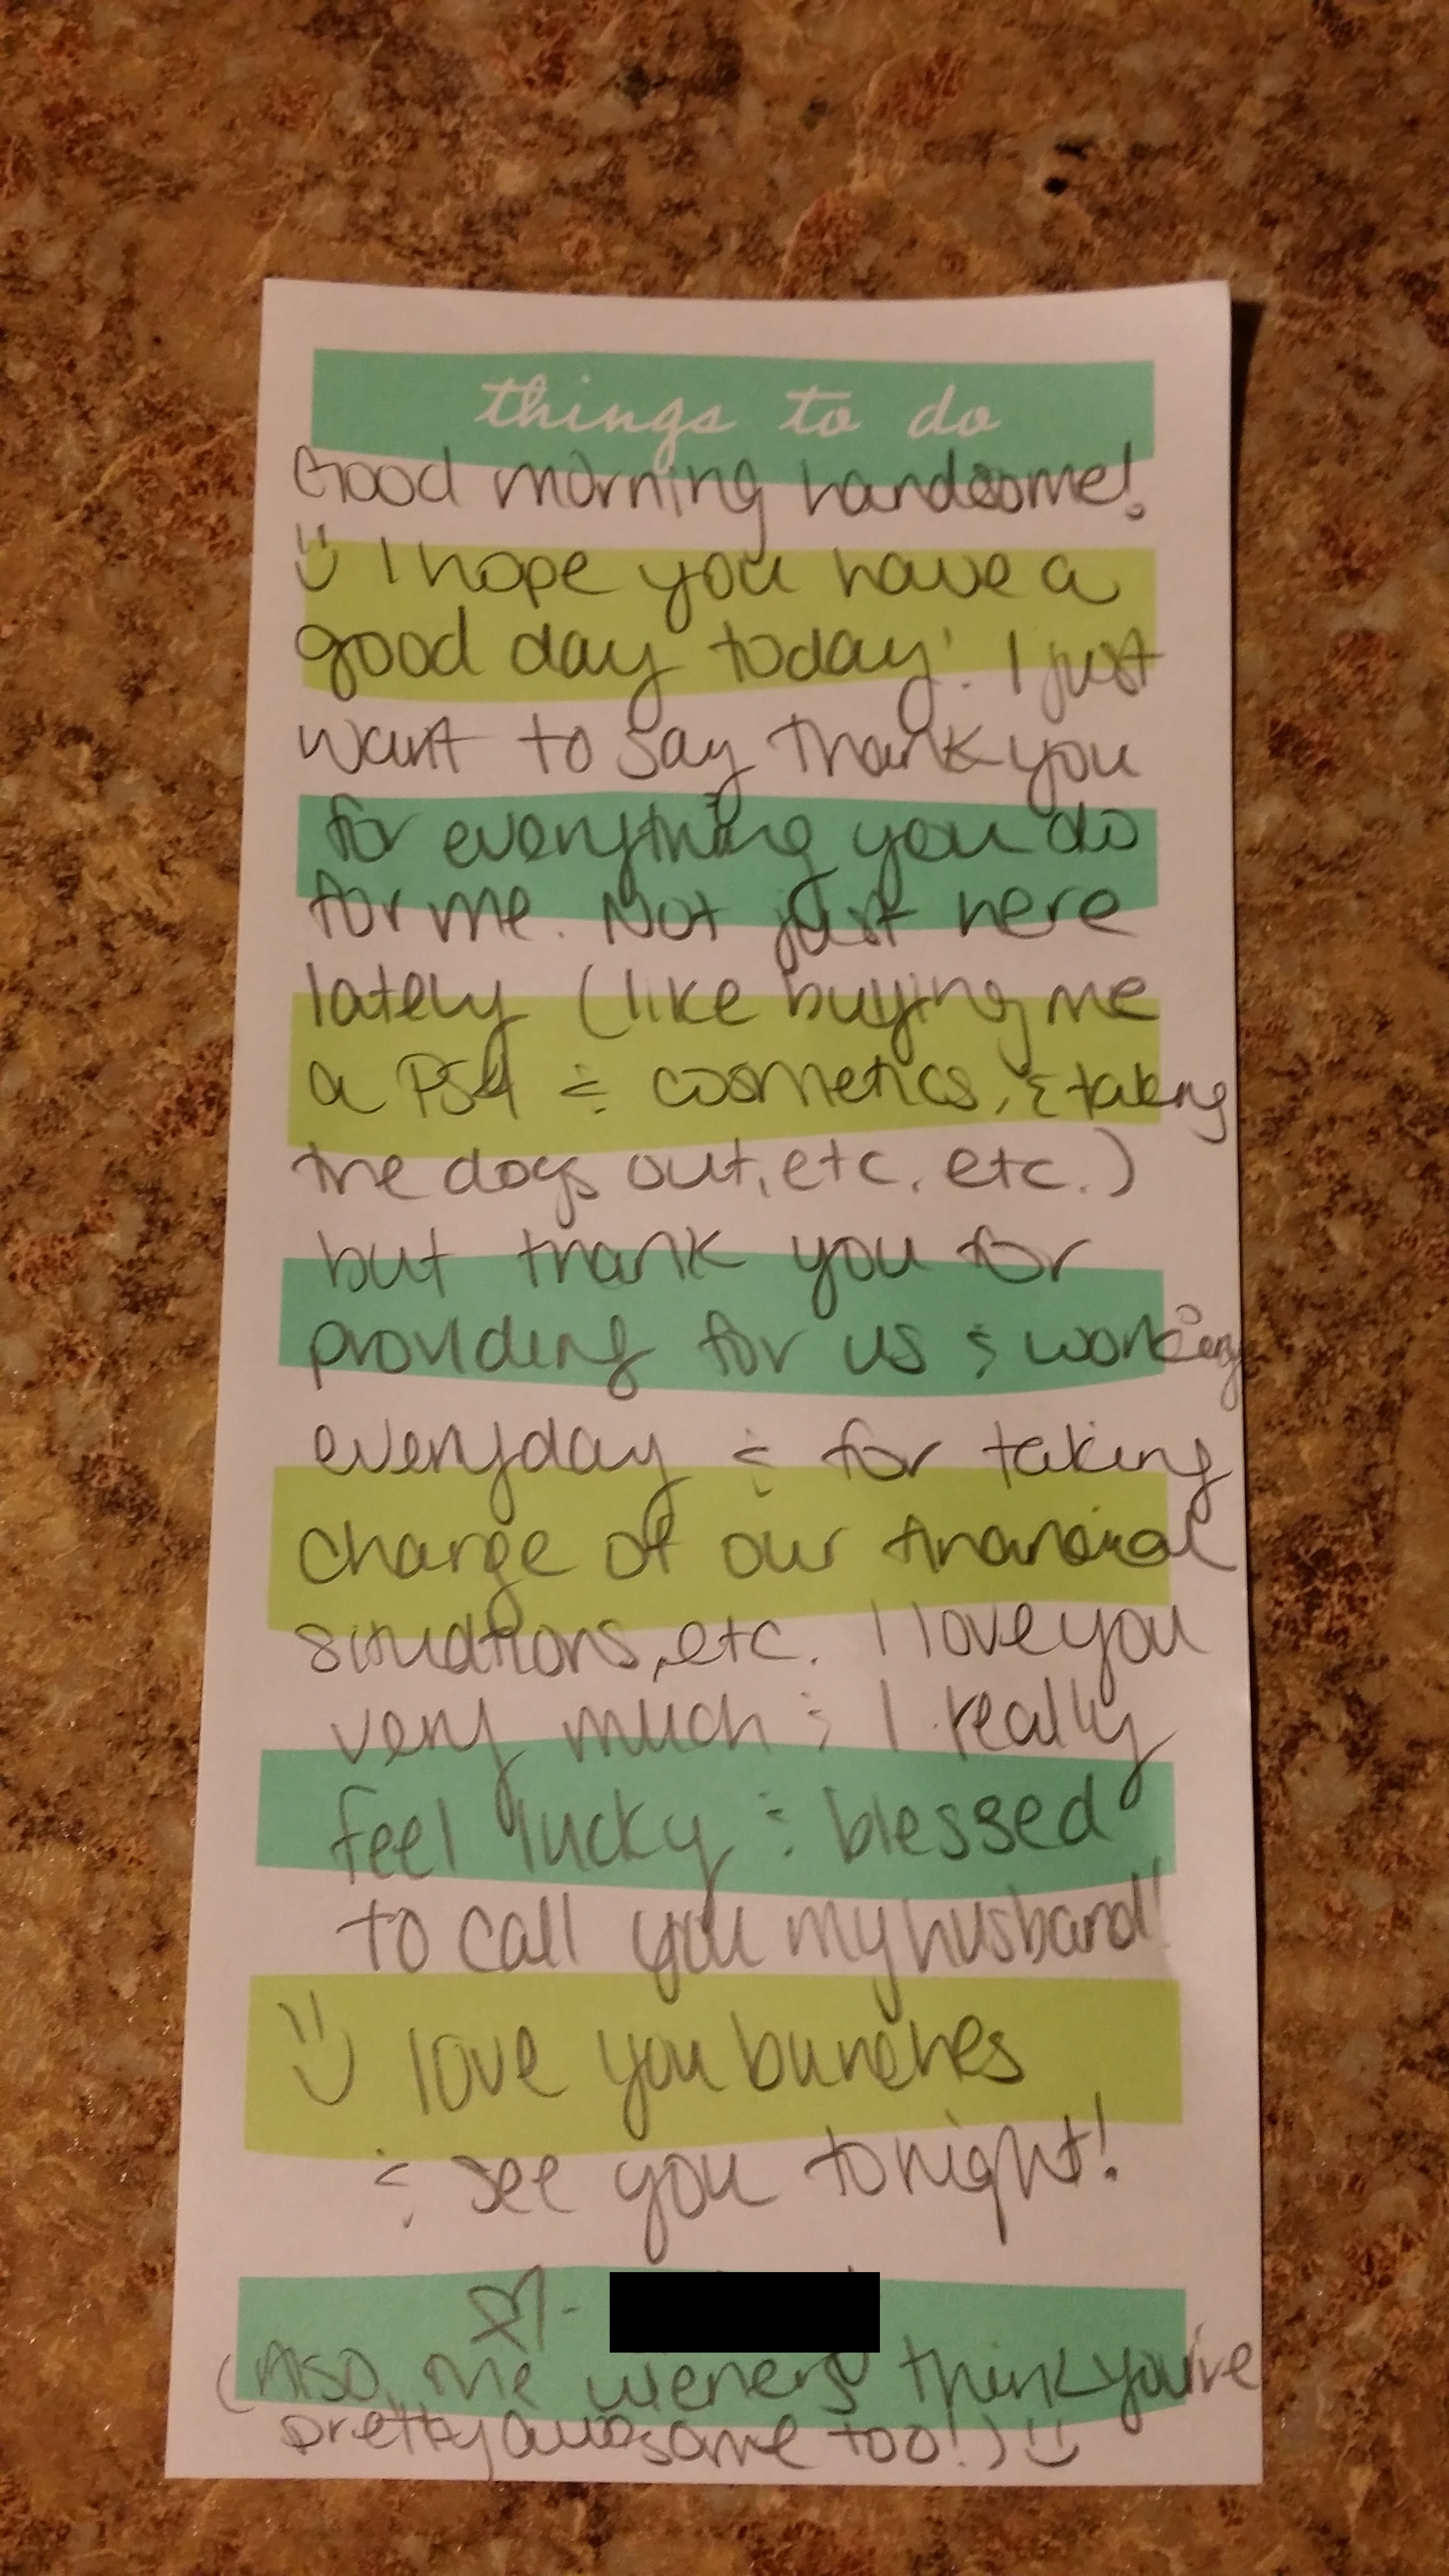 things to do
Good morning handsome!
I hope you have a
good day today! I just
want to say thank you
for everything you do
for me. Not just here
lately (like buying me
a PS4 & cosmetics, & taking
the dogs out, etc. etc.)
but thank you for
providing for us & working
everyday & for taking
charge of our financial
situations, etc. I love you
very much & I really
feel lucky & blessed
to call you my husband!
love you bunches
& see you tonight!
(Also, the wieners think you're
pretty awesome too!)